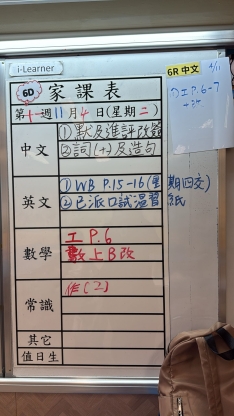 i-Learner
6D 家課表
第十一週11月4日(星期二)
中文
①默及進評改簽
②詞(十)及造句
英文
①WB P.15-16(星期四交)
②已派口試溫習紙
數學
工 P.6
數上B改
常識
作(二)
其它
值日生
6R 中文
4/11
①工P.6-7